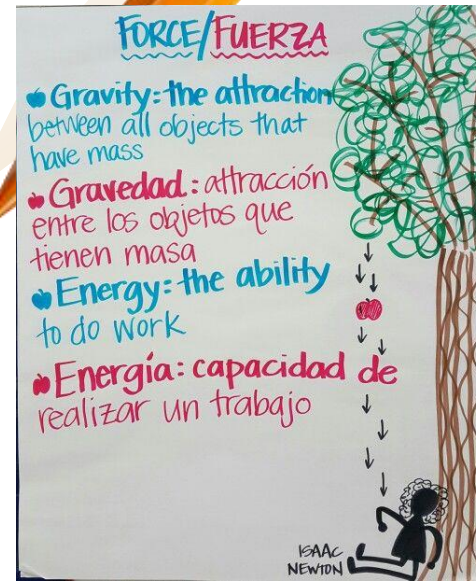 FORCE/FUERZA
Gravity: the attraction
between all objects that
have mass
Gravedad: attracción
entre los objetos que
tienen masa
Energy: the ability
to do work
Energía: capacidad de
realizar un trabajo
ISAAC
NEWTON